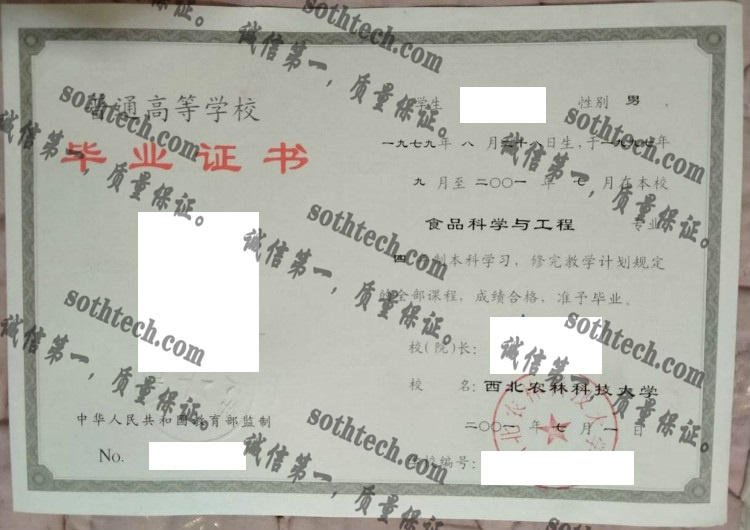 普通高等学校
毕业证书
中华人民共和国教育部监制
No.
学生 性别 男 ，
一九七九年 八 月二十八日生，于一九九七年
九 月至 二〇〇一 年 七 月在本校
食品科学与工程 专业
四 年制本科学习，修完教学计划规定
的全部课程，成绩合格，准予毕业。
校（院）长：
校 名：西北农林科技大学
二〇〇一 年 七 月 一 日
学校编号：
sothtech.com
诚信第一，质量保证。
sothtech.com
诚信第一，质量保证。
sothtech.com
诚信第一，质量保证。
sothtech.com
诚信第一，质量保证。
sothtech.com
诚信第一，质量保证。
sothtech.com
诚信第一，质量保证。
sothtech.com
诚信第一，质量保证。